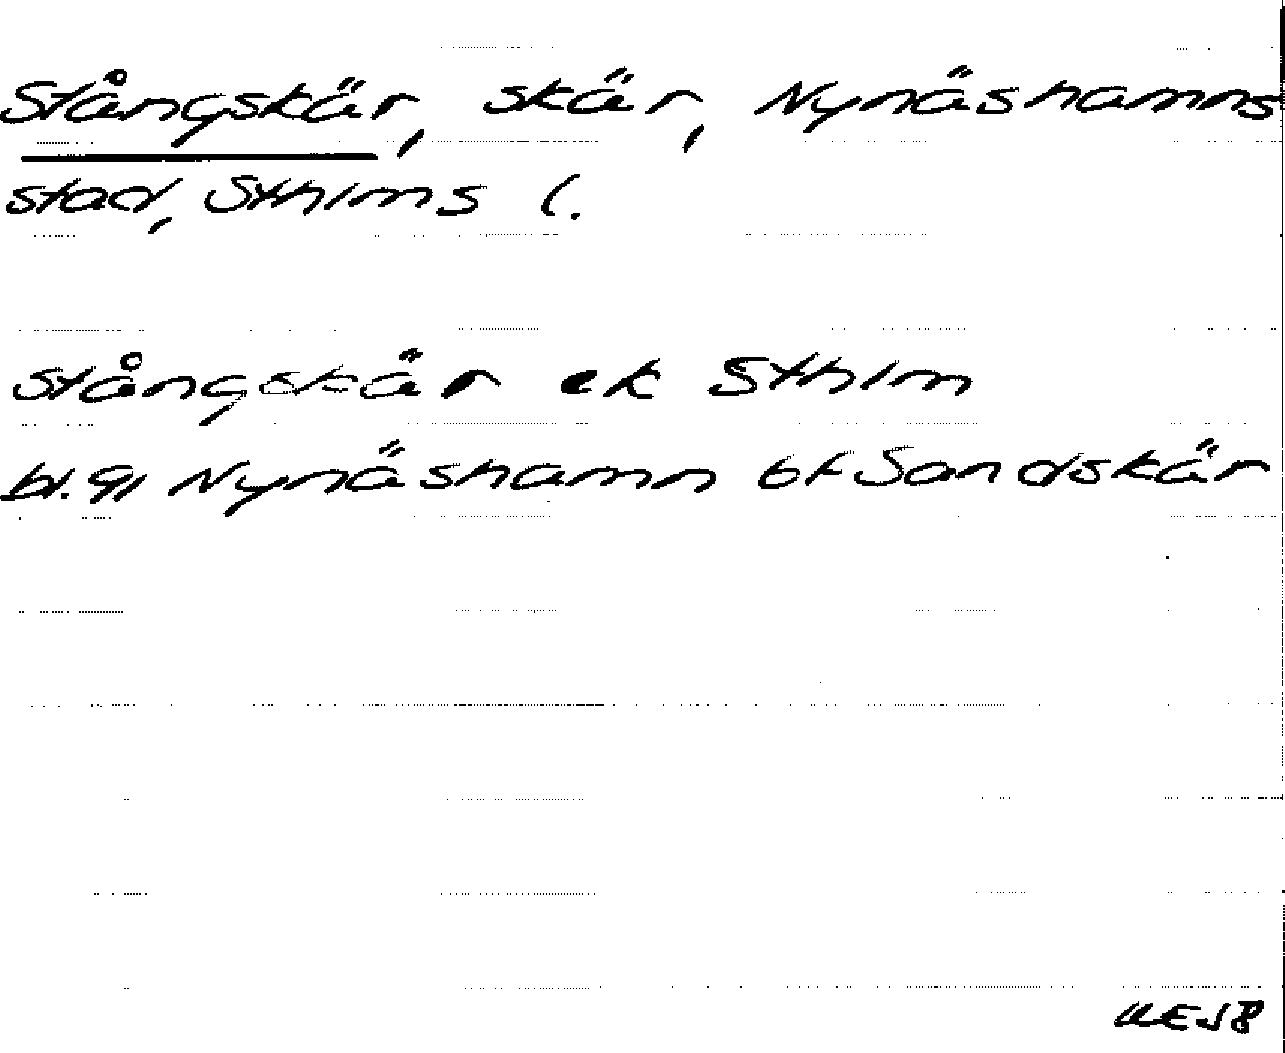 Stångskär, skär, Nynäshamns
stad, Sthlms l.
Stångskär ek Sthlm
bl. 91 Nynäshamn bf Sandskär